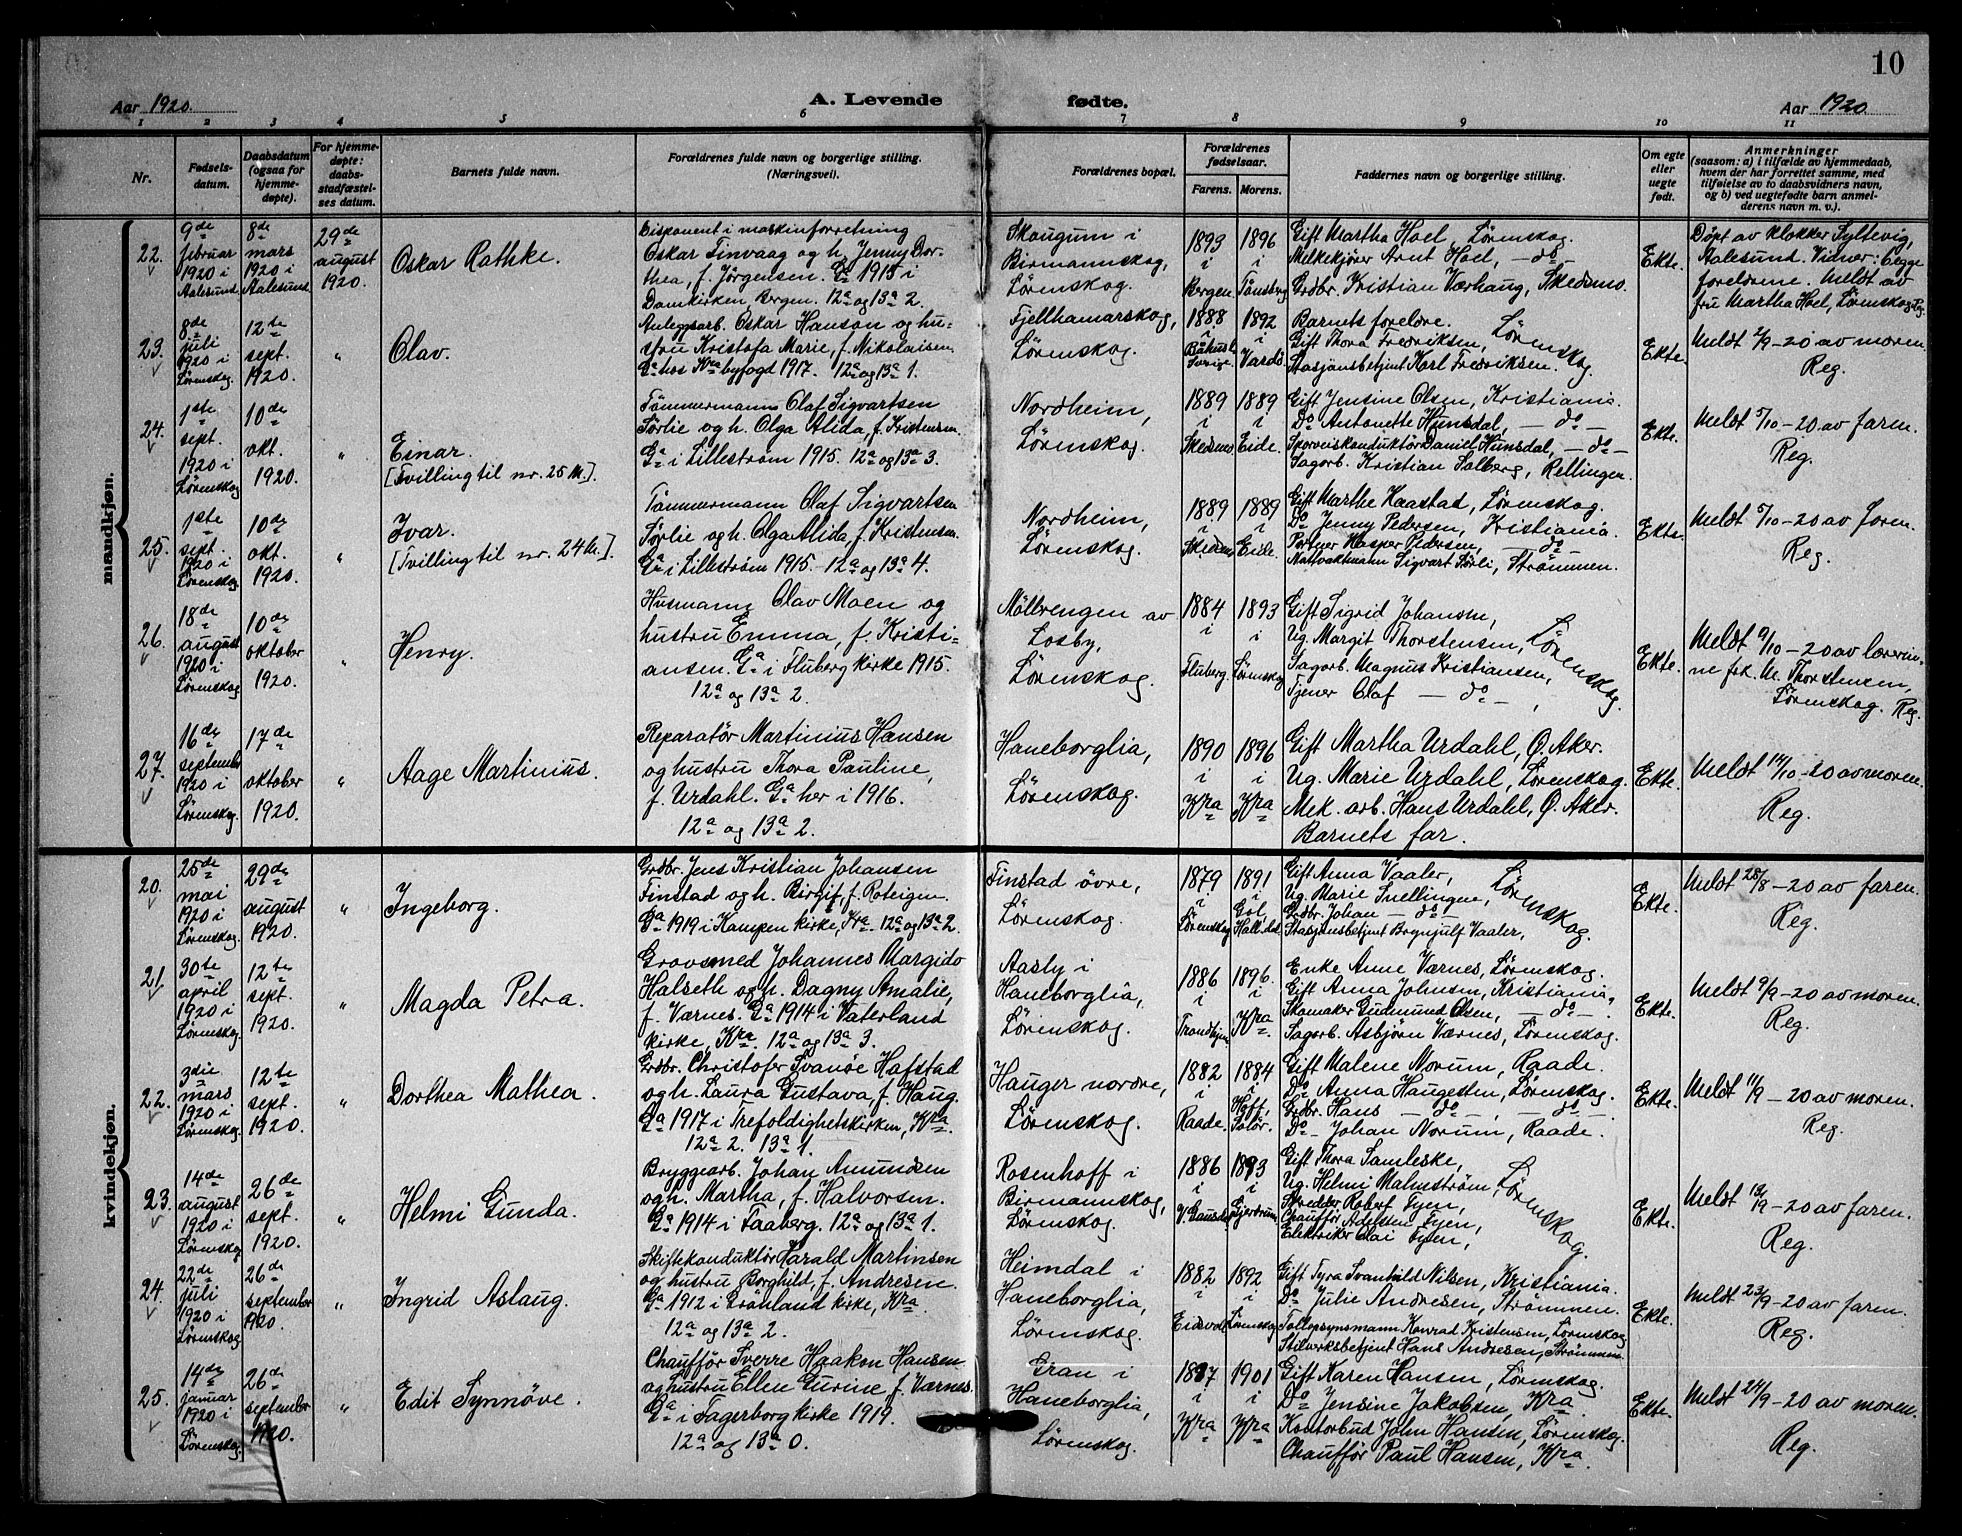 10
Aar 1920.
A. Levende fødte.
Aar 1920.
1 2 3 4 5 6 7 8 9 10 11
Nr.
Fødsels-
datum.
Daabsdatum
(ogsaa for
hjemme-
døpte).
For hjemme-
døpte:
daabs-
stadfæstel-
ses datum.
Barnets fulde navn.
Forældrenes fulde navn og borgerlige stilling.
(Næringsvei).
Forældrenes bopæl.
Forældrenes
fødselsaar.
Farens. Morens.
Faddernes navn og borgerlige stilling.
Om egte
eller
uegte
født.
Anmerkninger
(saasom: a) i tilfælde av hjemmedaab,
hvem der har forrettet samme, med
tilføielse av to daabsvidners navn,
og b) ved uegtefødte barn anmel-
derens navn m. v.).
mandkjøn.
22.
9de
februar
1920 i
Aalesund.
8de
mars
1920 i
Aalesund.
29de
august
1920.
Oskar Rathke.
Disponent i maskinforretning
Oskar Tinvaag og h. Jenny Dor-
thea, f. Jørgensen. Ga 1915 i
Domkirken, Bergen. 12a og 13a 2.
Skaugum i
Birmannskog,
Lörenskog.
1893
i
Bergen.
1896
i
Tönsberg
Gift Martha Hoel, Lörenskog.
Melkekjører Arnt Hoel, — do —
Grdbr. Kristian Værhaug, Skedsmo.
Ekte.
Döpt av klokker Syltevig,
Aalesund. Vidner: begge
foreldrene. Meldt av
fru Martha Hoel, Lörenskog. Reg.
23.
8de
juli
1920 i
Lörenskog.
12te
sept.
1920.
"
Olav.
Anlegsarb. Oskar Hanson og hu-
stru Kristofa Marie, f. Nikolaisen.
Ga hos Kra byfogd 1917. 12a og 13a 1.
Fjellhamarskog,
Lörenskog.
1888
i
Båhusl.
Sverige.
1892
i
Vardö.
Barnets foreldre.
Gift Thora Fredriksen,
Stasjonsbetjent Karl Fredriksen.
Lörenskog.
Ekte.
Meldt 2/9-20 av moren.
Reg.
24.
1ste
sept.
1920 i
Lörenskog
10de
okt.
1920.
"
Einar.
[Tvilling til nr. 25 M.].
Tömmermann Olaf Sigvartsen
Sörlie og h. Olga Alida, f. Kristensen.
Ga i Lilleström 1915. 12a og 13a 3.
Nordheim,
Lörenskog.
1889
i
Skedsmo
1889
i
Eide.
Gift Jensine Olsen, Kristiania.
Do Antonette Hunsdal, — do —
Sporveiskonduktör Daniel Hunsdal, — do —
Sagarb. Kristian Solberg, Rellingen.
Ekte.
Meldt 5/10-20 av faren.
Reg.
25.
1ste
sept.
1920 i
Lörenskog
10de
okt.
1920.
"
Ivar.
[Tvilling til nr. 24 M.].
Tömmermann Olaf Sigvartsen
Sörlie og h. Olga Alida, f. Kristensen.
Ga i Lilleström 1915. 12a og 13a 4.
Nordheim,
Lörenskog.
1889
i
Skedsmo
1889
i
Eide.
Gift Marthe Kaastad, Lörenskog.
Do Jenny Pedersen, Kristiania.
Portner Kasper Pedersen, — do —
Nattvaktmann Sigvart Sörli, Strömmen.
Ekte.
Meldt 5/10-20 av faren.
Reg.
26.
18de
august
1920 i
Lörenskog
10de
oktober
1920.
"
Henry.
Husmann Olav Moen og
hustru Emma, f. Kristi-
ansen. Ga i Fluberg kirke 1915.
12a og 13a 2.
Möllerengen av
Losby,
Lörenskog.
1884
i
Fluberg.
1893
i
Lörenskog
Gift Sigrid Johansen,
Ug. Margit Thorstensen,
Sagarb. Magnus Kristiansen,
Tjener Olaf — do —,
Lörenskog.
Ekte.
Meldt 9/10-20 av lærerin-
ne frk. M. Thorstensen,
Lörenskog. Reg.
27.
16de
september
1920 i
Lörenskog.
17de
oktober
1920.
"
Aage Martinius.
Reparatör Martinius Hansen
og hustru Thora Pauline,
f. Urdahl. Ga her i 1916.
12a og 13a 2.
Haneborglia,
Lörenskog.
1890
i
Kra
1896
i
Kra
Gift Martha Urdahl, Ø. Aker.
Ug. Marie Urdahl, Lörenskog.
Mek. arb. Hans Urdahl, Ø. Aker.
Barnets far.
Ekte.
Meldt 14/10-20 av moren.
Reg.
kvindekjøn.
20.
25de
mai
1920 i
Lörenskog.
29de
august
1920.
"
Ingeborg.
Grdbr. Jens Kristian Johansen
Finstad og h. Birgit, f. Roteigen.
Ga 1919 i Kampen kirke, Kra. 12a og 13a 2.
Finstad övre,
Lörenskog.
1879
i
Lörenskog
1891
i
Gol,
Hall.dal.
Gift Anna Vaaler,
Ug. Marie Snellingen,
Grdbr. Johan — do —,
Stasjonsbetjent Brynjulf Vaaler,
Lörenskog.
Ekte.
Meldt 28/8-20 av faren.
Reg.
21.
30te
april
1920 i
Lörenskog.
12te
sept.
1920.
"
Magda Petra.
Grovsmed Johannes Margido
Halseth og h. Dagny Amalie,
f. Værnes. Ga 1914 i Vaterland
kirke, Kra. 12a og 13a 3.
Aasly i
Haneborglia,
Lörenskog.
1886
i
Trondhjem
1896.
i
Kra
Enke Anne Værnes, Lörenskog.
Gift Anna Johnsen, Kristiania.
Skomaker Gudmund Olsen, — do —
Sagarb. Asbjörn Værnes, Lörenskog.
Ekte.
Meldt 9/9-20 av moren.
Reg.
22.
3die
mars
1920 i
Lörenskog
12te
sept.
1920.
"
Dorthea Mathea.
Grdbr. Christofer Svanöe Hafstad
og h. Laura Gustava f. Haug.
Ga 1917 i Trefoldighetskirken, Kra.
12a 2. 13a 1.
Hauger nordre,
Lörenskog.
1882
i
Raade.
1884
i
Hoff,
Solör.
Gift Malene Norum, Raade.
Do Anna Haugesten, Lörenskog.
Grdbr. Hans — do —, — do —
Do — Johan Norum, Raade.
Ekte.
Meldt 11/9-20 av moren.
Reg.
23.
14de
august
1920 i
Lörenskog
26de
sept.
1920.
"
Helmi Gunda.
Bryggearb. Johan Amundsen
og h. Martha, f. Halvorsen.
Ga 1914 i Faaberg. 12a og 13a 1.
Rosenhoff i
Birmannskog,
Lörenskog.
1886
i
V. Gausdal
1893
i
Gjerdrum
Gift Thora Samleske,
Ug. Helmi Malmström,
Skredder Robert Fyen,
Chauffør Adelsten Fyen,
Elektriker Olai Fyen,
Lörenskog.
Ekte.
Meldt 13/9-20 av faren.
Reg.
24.
22de
juli
1920 i
Lörenskog
26de
september
1920.
"
Ingrid Aslaug.
Skiftekonduktör Harald Martinsen
og hustru Borghild, f. Andresen.
Ga 1912 i Grönland kirke, Kra
12a og 13a 2.
Heimdal i
Haneborglia,
Lörenskog.
1882
i
Eidsvol
1892
i
Lörenskog
Gift Tyra Svanhild Nilsen, Kristiania.
Do Julie Andresen, Strömmen.
Tollopsynsmann Konrad Kristensen, Lörenskog
Stilverksbetjent Hans Andresen, Strömmen.
Ekte.
Meldt 23/9-20 av faren.
Reg.
25.
14de
januar
1920 i
Lörenskog.
26de
september
1920.
"
Edit Synnöve.
Chauffør Sverre Haakon Hansen
og hustru Ellen Gurine f. Værnes.
Ga i Fagerborg kirke 1919.
12a og 13a 0.
Gran i
Haneborglia,
Lörenskog.
1897
i
Kra
1901
i
Kra
Gift Karen Hansen, Lörenskog.
Do Jensine Jakobsen, Kra
Kontorbud John Hansen, Lörenskog.
Chauffør Paul Hansen, Kra.
Ekte.
Meldt 24/9-20 av moren.
Reg.